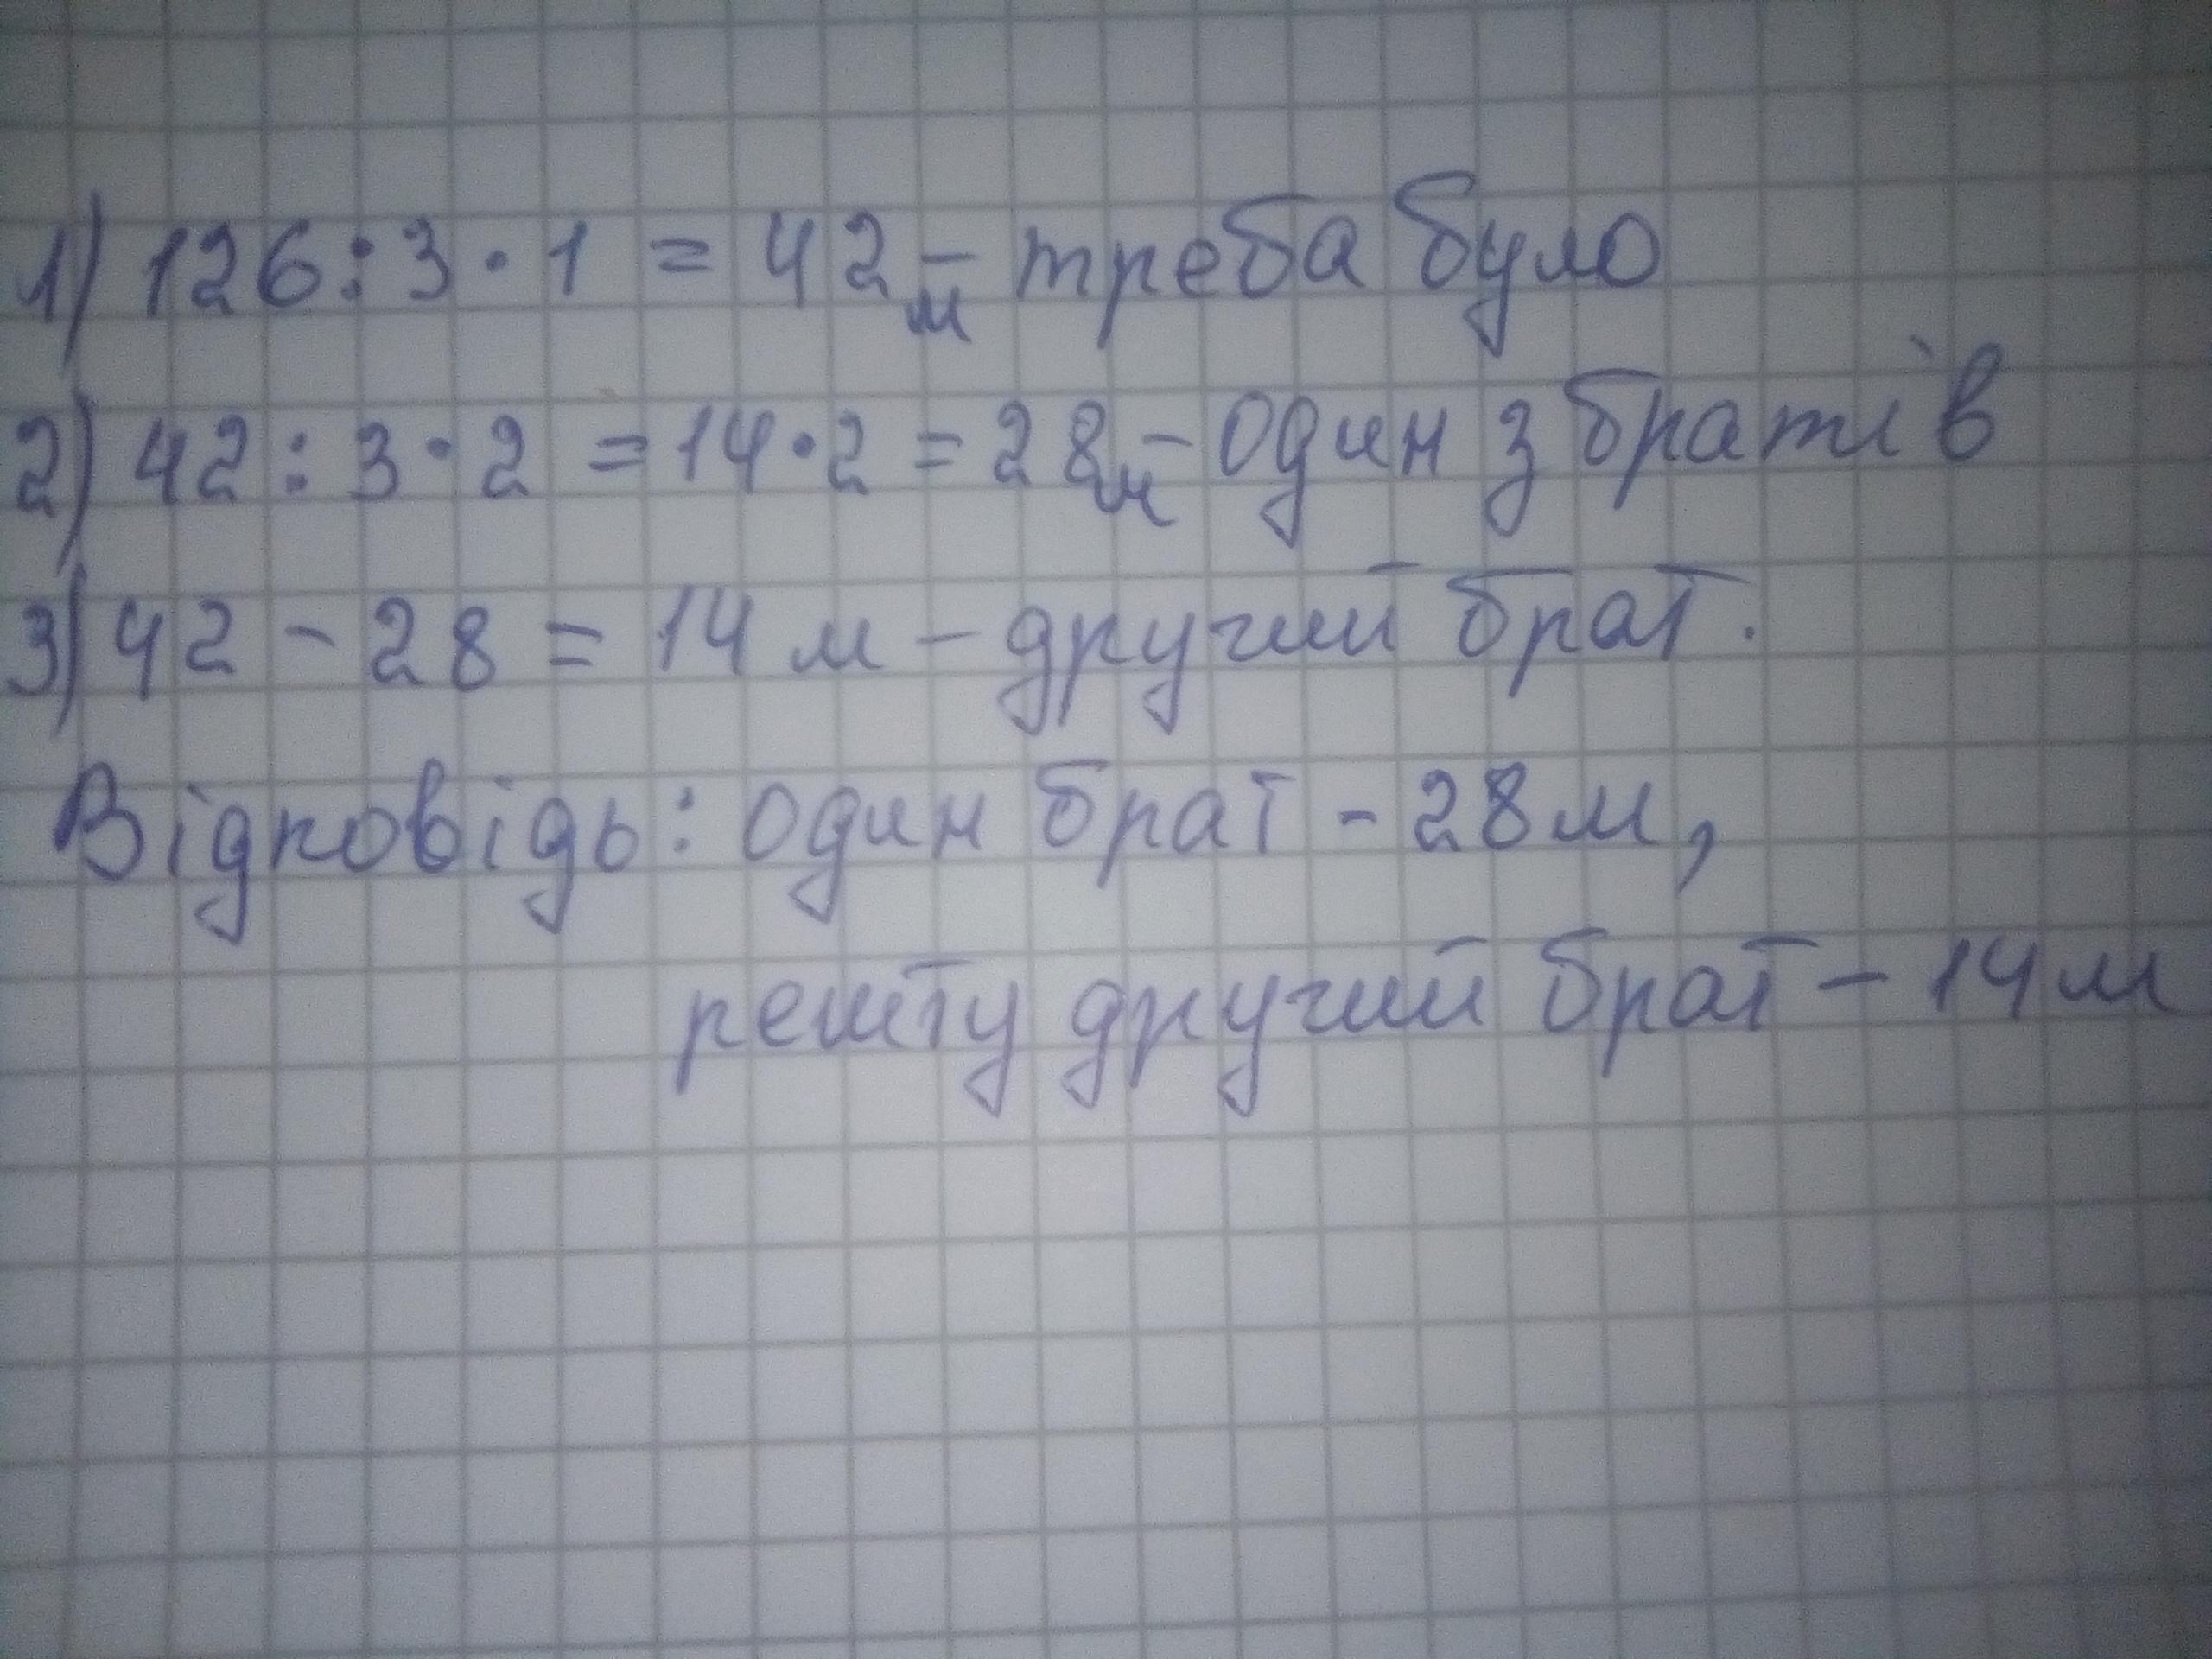 1) 126 : 3 · 1 = 42 м - треба було
2) 42 : 3 · 2 = 14 · 2 = 28 м - один з братів
3) 42 - 28 = 14 м - другий брат.
Відповідь: один брат - 28 м,
решту другий брат - 14 м